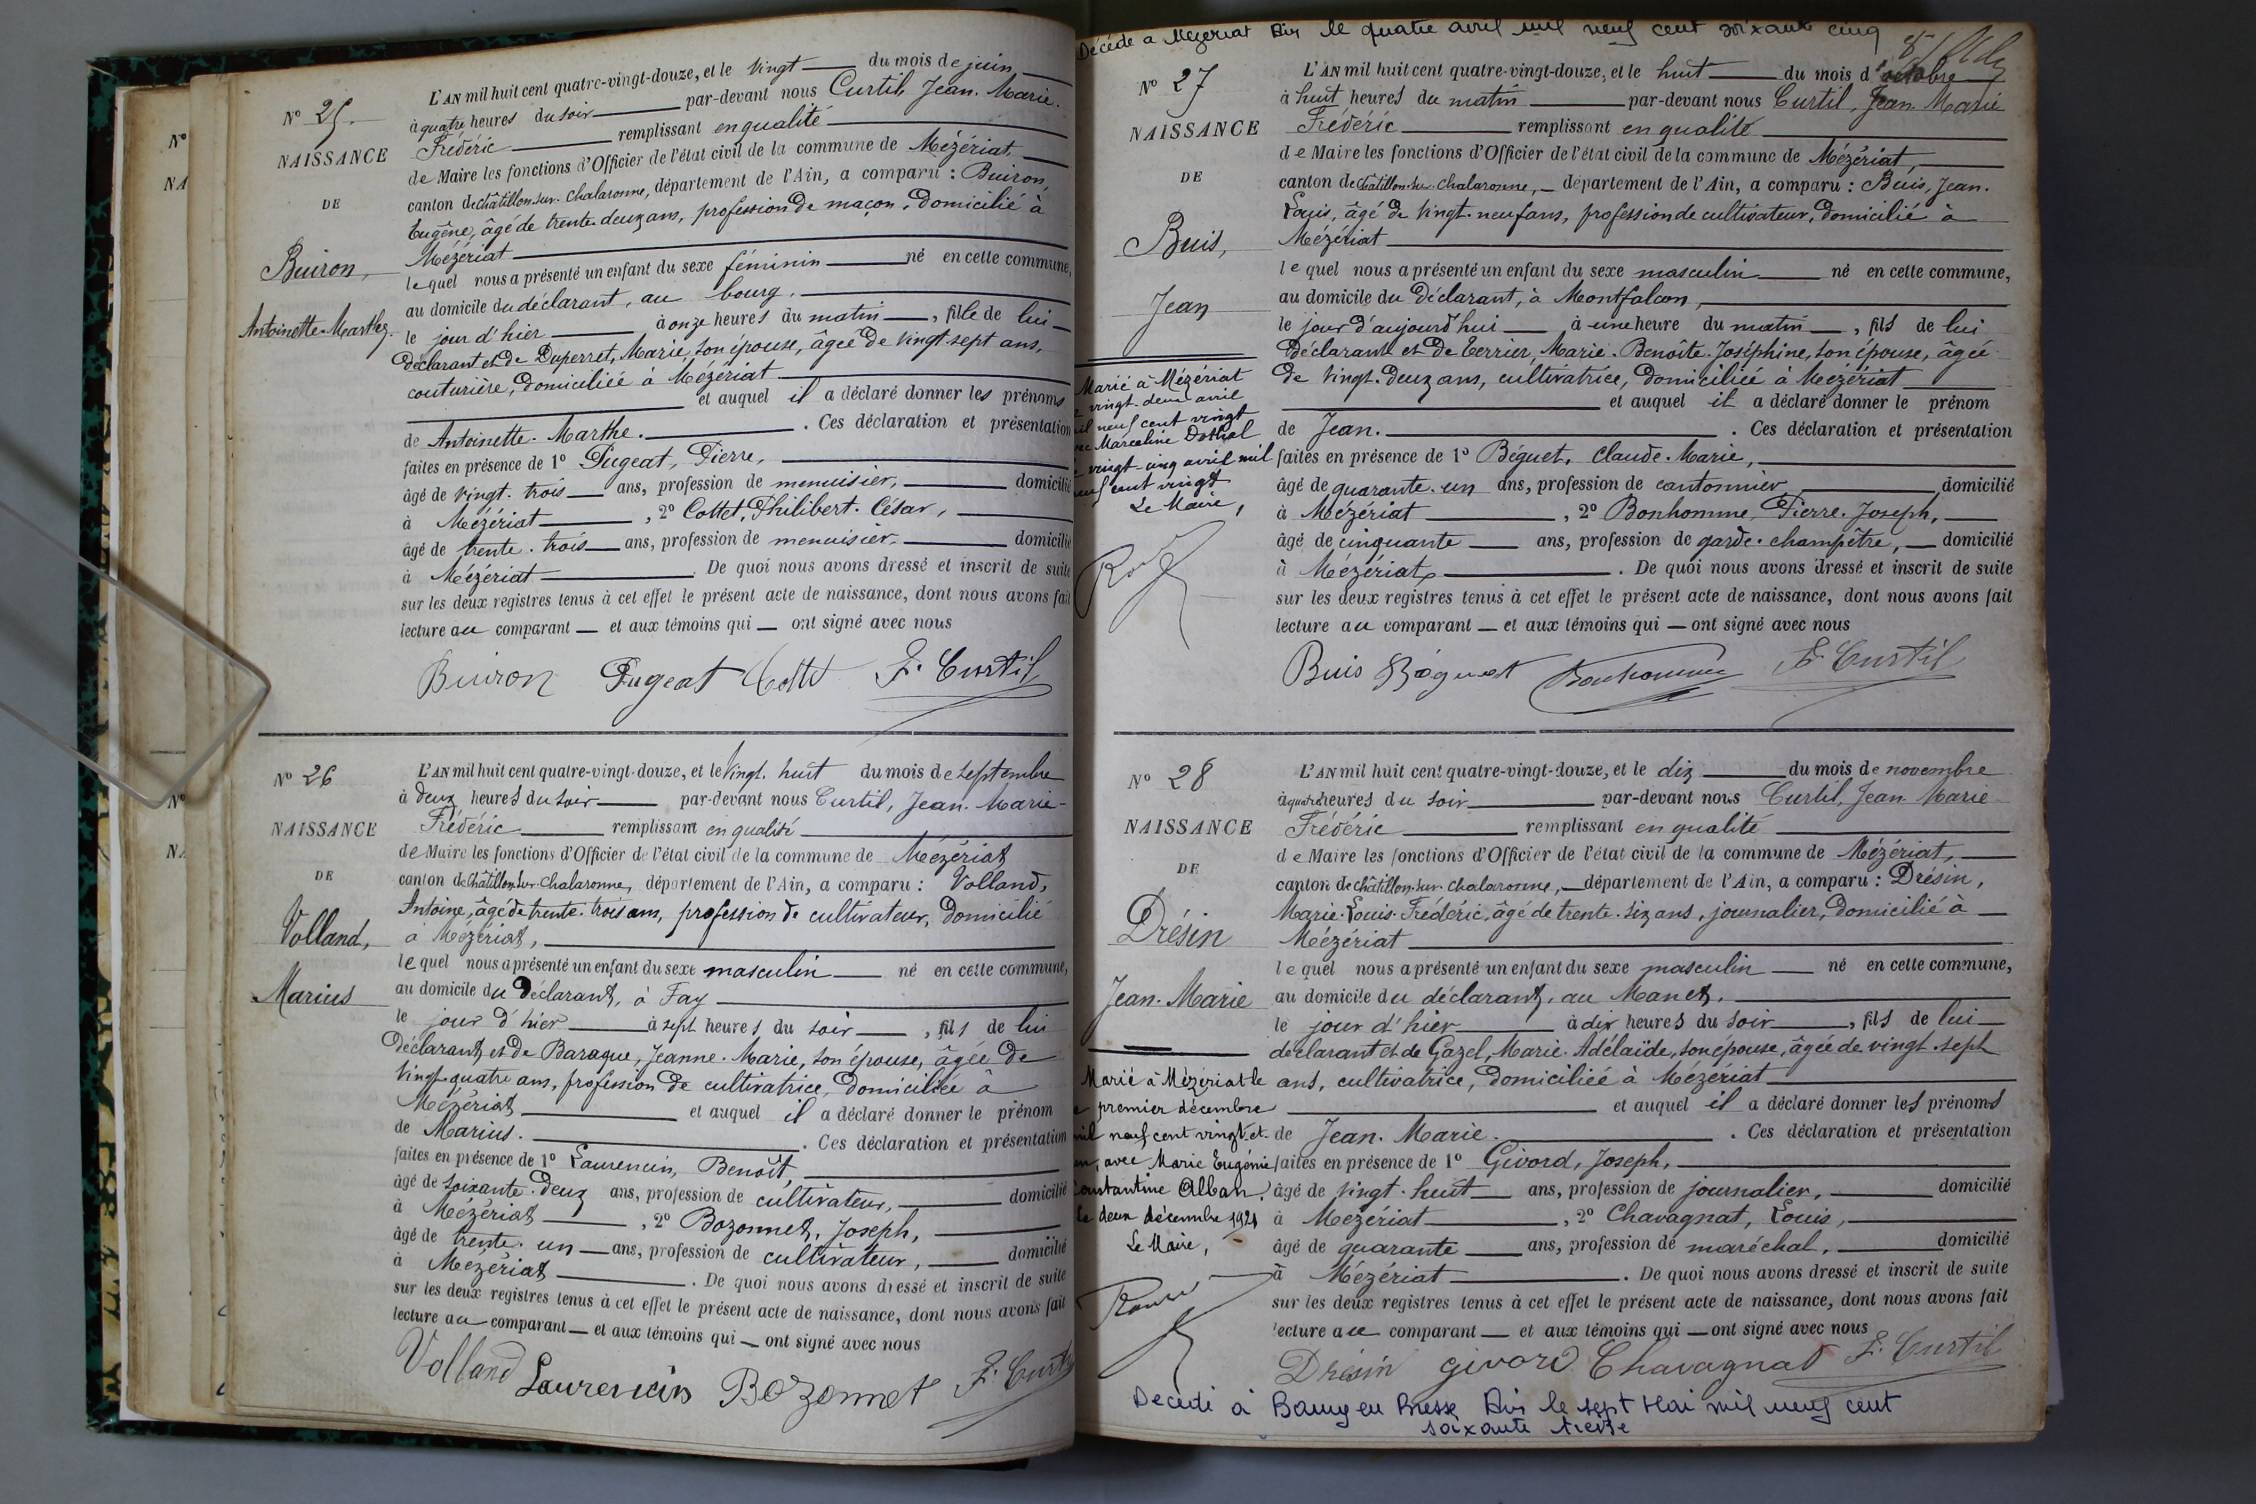 Nº 25.
NAISSANCE
DE
Buiron,
Antoinette-Marthe.
L'AN mil huit cent quatre-vingt-douze, et le vingt du mois de juin
à quatre heures du soir par-devant nous Curtil, Jean-Marie-
Frédéric remplissant en qualité
de Maire les fonctions d'Officier de l'état civil de la commune de Mézériat,
canton de Châtillon-sur-Chalaronne, département de l'Ain, a comparu : Buiron,
Eugène, âgé de trente-deux ans, profession de maçon, domicilié à
Mézériat
lequel nous a présenté un enfant du sexe féminin né en cette commune,
au domicile du déclarant, au bourg,
le jour d'hier à onze heures du matin, fille de lui
déclarant et de Duperret, Marie, son épouse, âgée de vingt-sept ans,
couturière, domiciliée à Mézériat
et auquel il a déclaré donner les prénoms
de Antoinette-Marthe. . Ces déclaration et présentation
faites en présence de 1º Pugeat, Pierre,
âgé de vingt-trois ans, profession de menuisier, domicilié
à Mézériat , 2º Cottet, Philibert-César,
âgé de trente-trois ans, profession de menuisier, domicilié
à Mézériat . De quoi nous avons dressé et inscrit de suite
sur les deux registres tenus à cet effet le présent acte de naissance, dont nous avons fait
lecture au comparant et aux témoins qui ont signé avec nous
Buiron Pugeat Cottet F. Curtil
Nº 26
NAISSANCE
DE
Volland,
Marius
L'AN mil huit cent quatre-vingt-douze, et le vingt-huit du mois de septembre
à deux heures du soir par-devant nous Curtil, Jean-Marie-
Frédéric remplissant en qualité
de Maire les fonctions d'Officier de l'état civil de la commune de Mézériat
canton de Châtillon-sur-Chalaronne, département de l'Ain, a comparu : Volland,
Antoine, âgé de trente-trois ans, profession de cultivateur, domicilié
à Mézériat,
lequel nous a présenté un enfant du sexe masculin né en cette commune,
au domicile du déclarant, à Fay
le jour d'hier à sept heures du soir , fils de lui
déclarant et de Baraque, Jeanne-Marie, son épouse, âgée de
vingt-quatre ans, profession de cultivatrice, domiciliée à
Mézériat et auquel il a déclaré donner le prénom
de Marius. . Ces déclaration et présentation
faites en présence de 1º Laurencin, Benoît,
âgé de soixante-deux ans, profession de cultivateur, domicilié
à Mézériat , 2º Bozonnet, Joseph,
âgé de trente-un ans, profession de cultivateur, domicilié
à Mézériat . De quoi nous avons dressé et inscrit de suite
sur les deux registres tenus à cet effet le présent acte de naissance, dont nous avons fait
lecture au comparant et aux témoins qui ont signé avec nous
Volland Laurencin Bozonnet F. Curtil
Décédé à Mézériat Ain le quatre avril mil neuf cent soixante cinq
Nº 27
NAISSANCE
DE
Buis,
Jean
Marié à Mézériat
vingt-deux avril
mil neuf cent vingt
avec Marceline
vingt-cinq avril mil
neuf cent vingt
Le Maire,
L'AN mil huit cent quatre-vingt-douze, et le huit du mois d'octobre
à huit heures du matin par-devant nous Curtil, Jean-Marie
Frédéric remplissant en qualité
de Maire les fonctions d'Officier de l'état civil de la commune de Mézériat,
canton de Châtillon-sur-Chalaronne, département de l'Ain, a comparu : Buis, Jean-
Louis, âgé de vingt-neuf ans, profession de cultivateur, domicilié à
Mézériat
lequel nous a présenté un enfant du sexe masculin né en cette commune,
au domicile du déclarant, à Montfalcon,
le jour d'aujourd'hui à une heure du matin , fils de lui
déclarant et de Terrier, Marie-Benoîte-Joséphine, son épouse, âgée
de vingt-deux ans, cultivatrice, domiciliée à Mézériat
et auquel il a déclaré donner le prénom
de Jean. . Ces déclaration et présentation
faites en présence de 1º Béguet, Claude-Marie,
âgé de quarante-un ans, profession de cantonnier domicilié
à Mézériat , 2º Bonhomme, Pierre-Joseph,
âgé de cinquante ans, profession de garde-champêtre, domicilié
à Mézériat . De quoi nous avons dressé et inscrit de suite
sur les deux registres tenus à cet effet le présent acte de naissance, dont nous avons fait
lecture au comparant et aux témoins qui ont signé avec nous
Buis Béguet Bonhomme F. Curtil
Nº 28
NAISSANCE
DE
Drésin
Jean-Marie
Marié à Mézériat le
premier décembre
mil neuf cent vingt et
un, avec Marie Eugénie
Constantine Alban,
Le deux décembre 1921
Le Maire,
L'AN mil huit cent quatre-vingt-douze, et le dix du mois de novembre
à quatre heures du soir par-devant nous Curtil, Jean-Marie
Frédéric remplissant en qualité
de Maire les fonctions d'Officier de l'état civil de la commune de Mézériat,
canton de Châtillon-sur-Chalaronne, département de l'Ain, a comparu : Drésin,
Marie-Louis-Frédéric, âgé de trente-six ans, journalier, domicilié à
Mézériat
lequel nous a présenté un enfant du sexe masculin né en cette commune,
au domicile du déclarant, au Manet,
le jour d'hier à dix heures du soir , fils de lui
déclarant et de Gazel, Marie-Adélaïde, son épouse, âgée de vingt-sept
ans, cultivatrice, domiciliée à Mézériat
et auquel il a déclaré donner les prénoms
de Jean-Marie. . Ces déclaration et présentation
faites en présence de 1º Givord, Joseph,
âgé de vingt-huit ans, profession de journalier, domicilié
à Mézériat , 2º Chavagnat, Louis,
âgé de quarante ans, profession de maréchal, domicilié
à Mézériat . De quoi nous avons dressé et inscrit de suite
sur les deux registres tenus à cet effet le présent acte de naissance, dont nous avons fait
lecture au comparant et aux témoins qui ont signé avec nous
Drésin Givord Chavagnat F. Curtil
Décédé à Bourg en Bresse Ain le sept Mai mil neuf cent
soixante treize